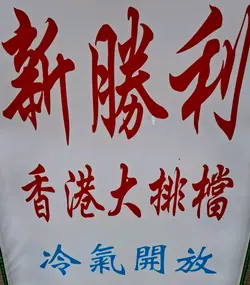 新勝利
香港大排檔
冷氣開放